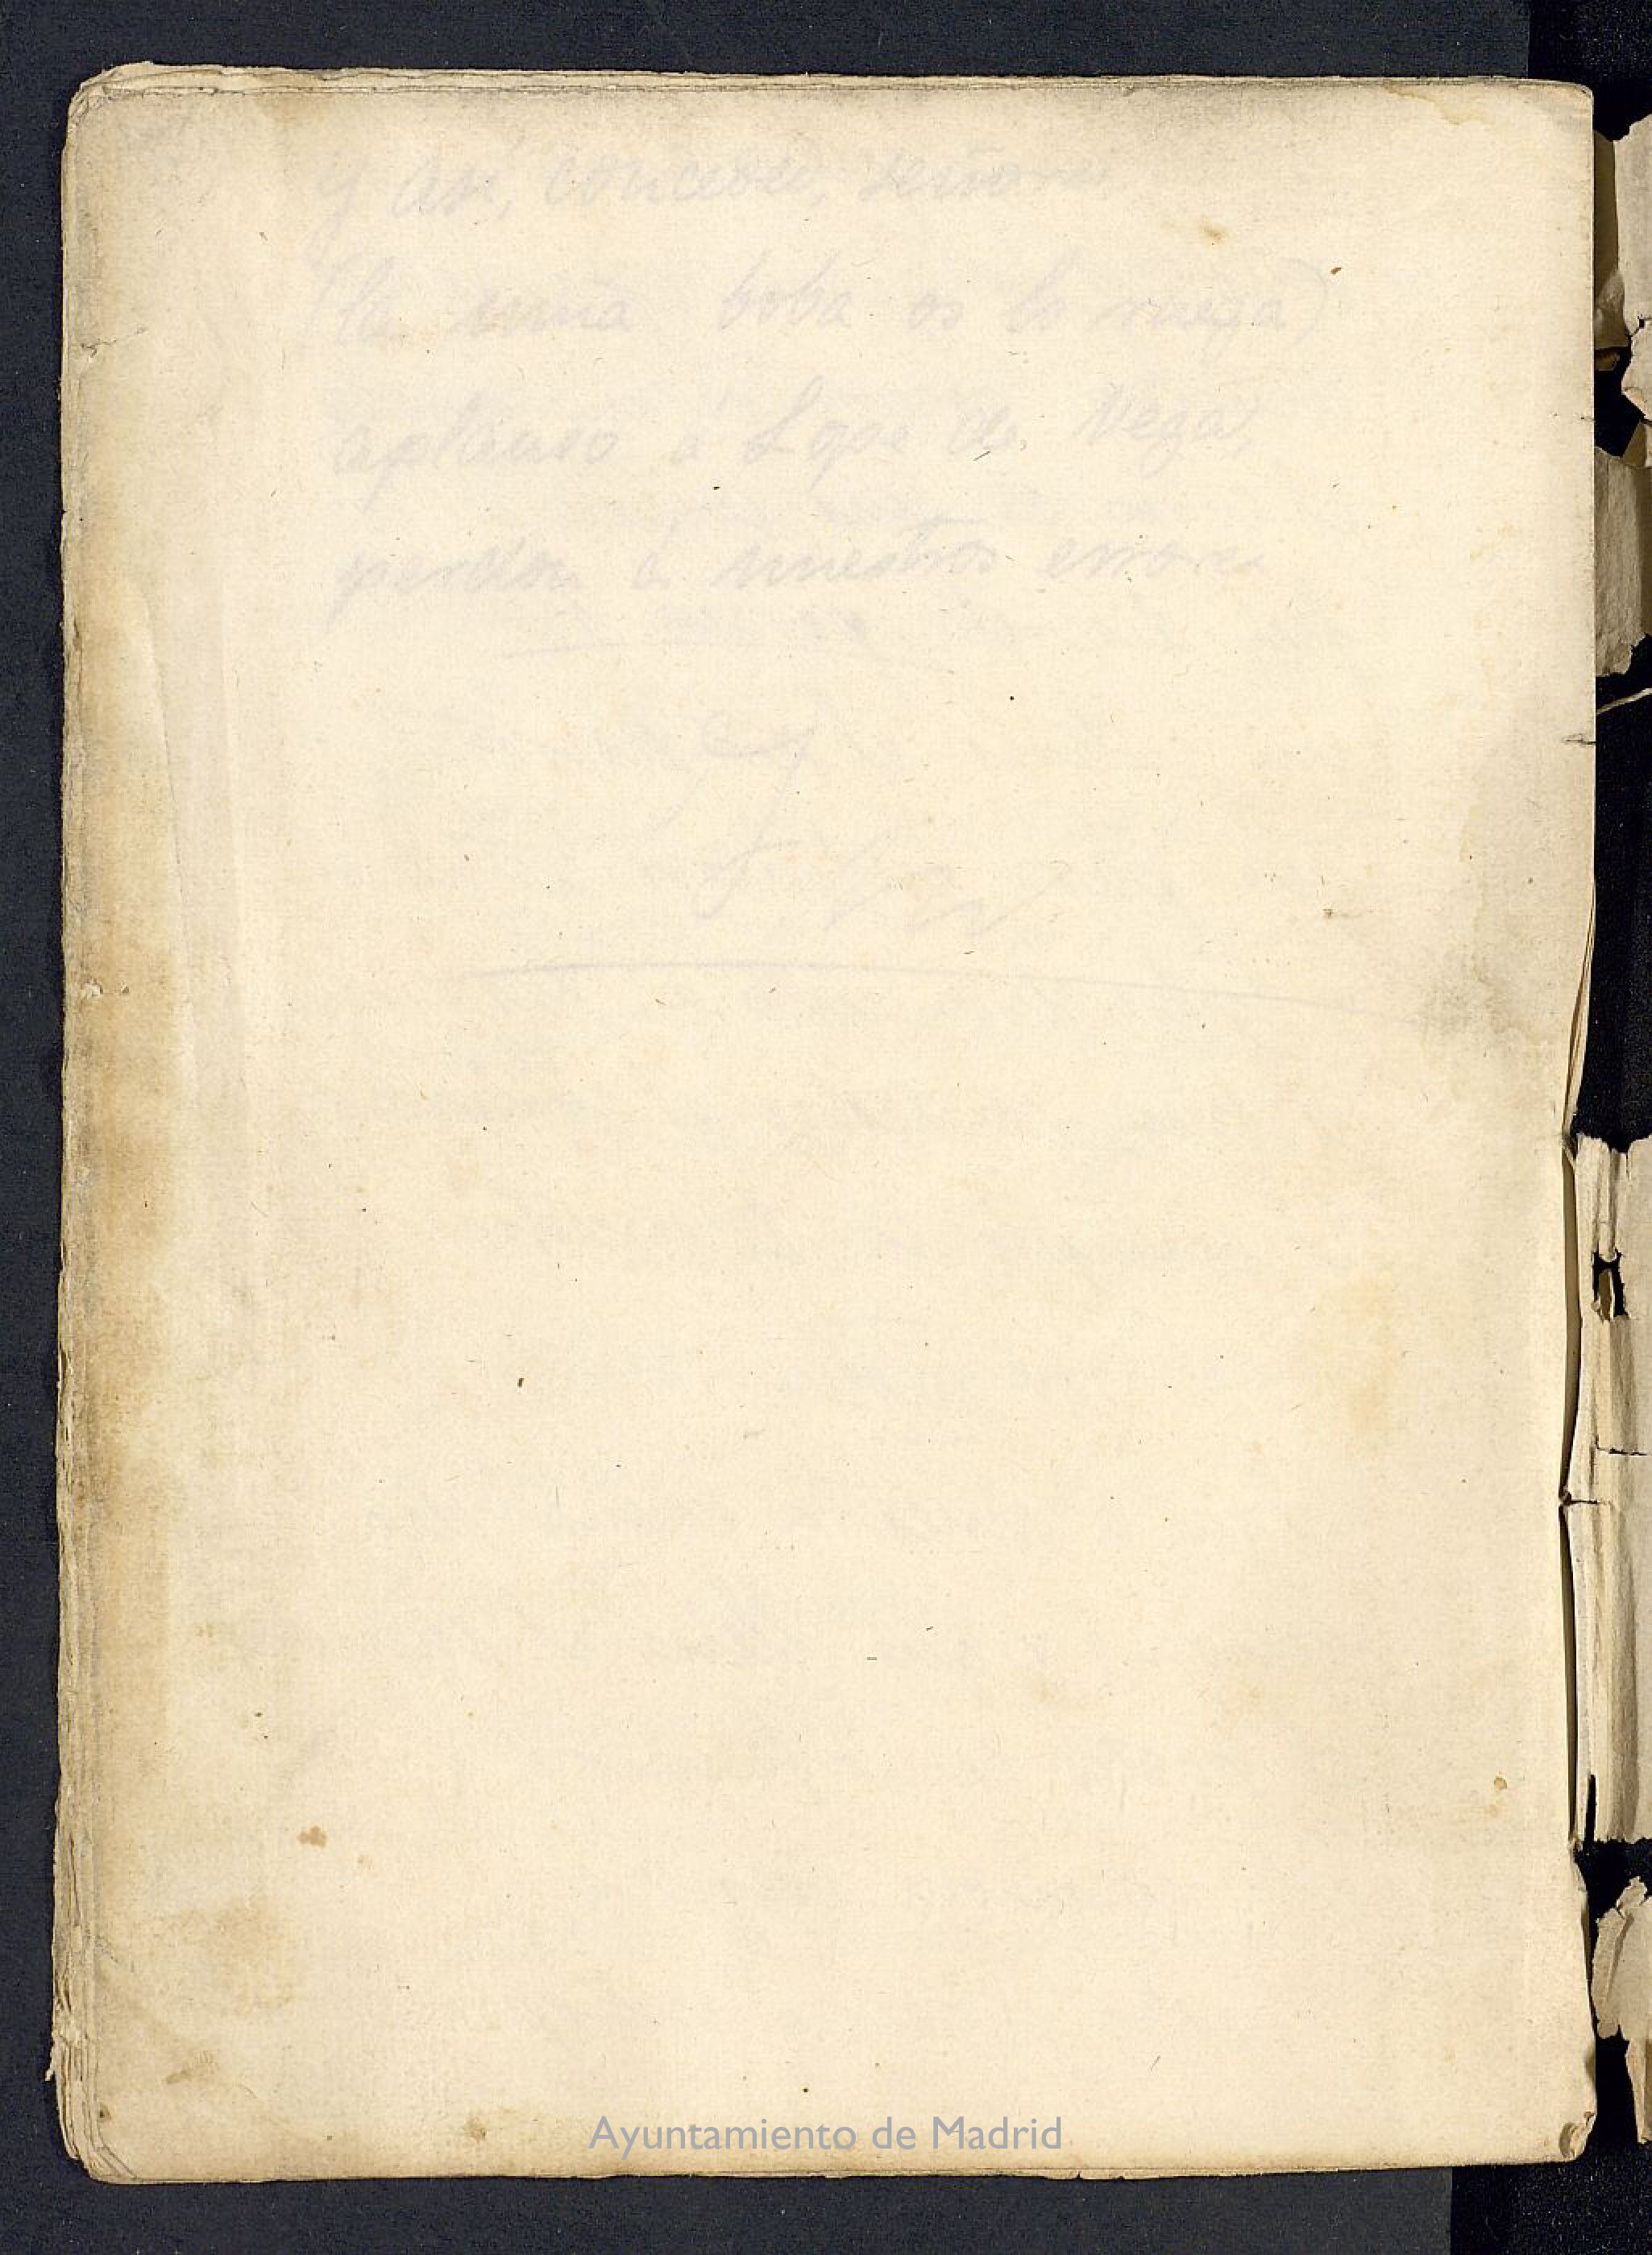 y así, conceded, señores
(la niña boba os lo ruega)
aplauso á Lope de Vega,
perdón á nuestros errores
Ayuntamiento de Madrid